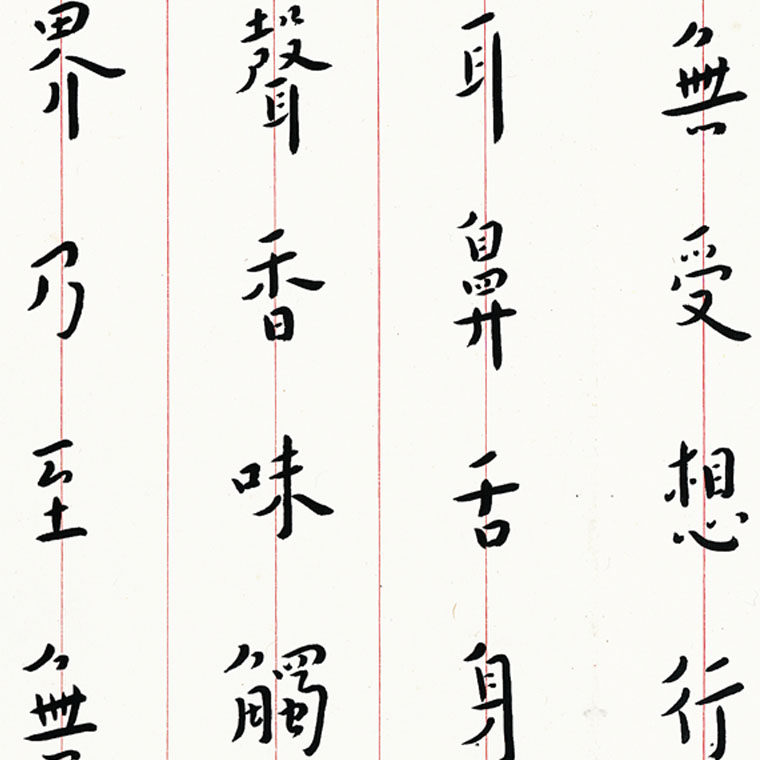 無受想行
耳鼻舌身
聲香味觸
界乃至無